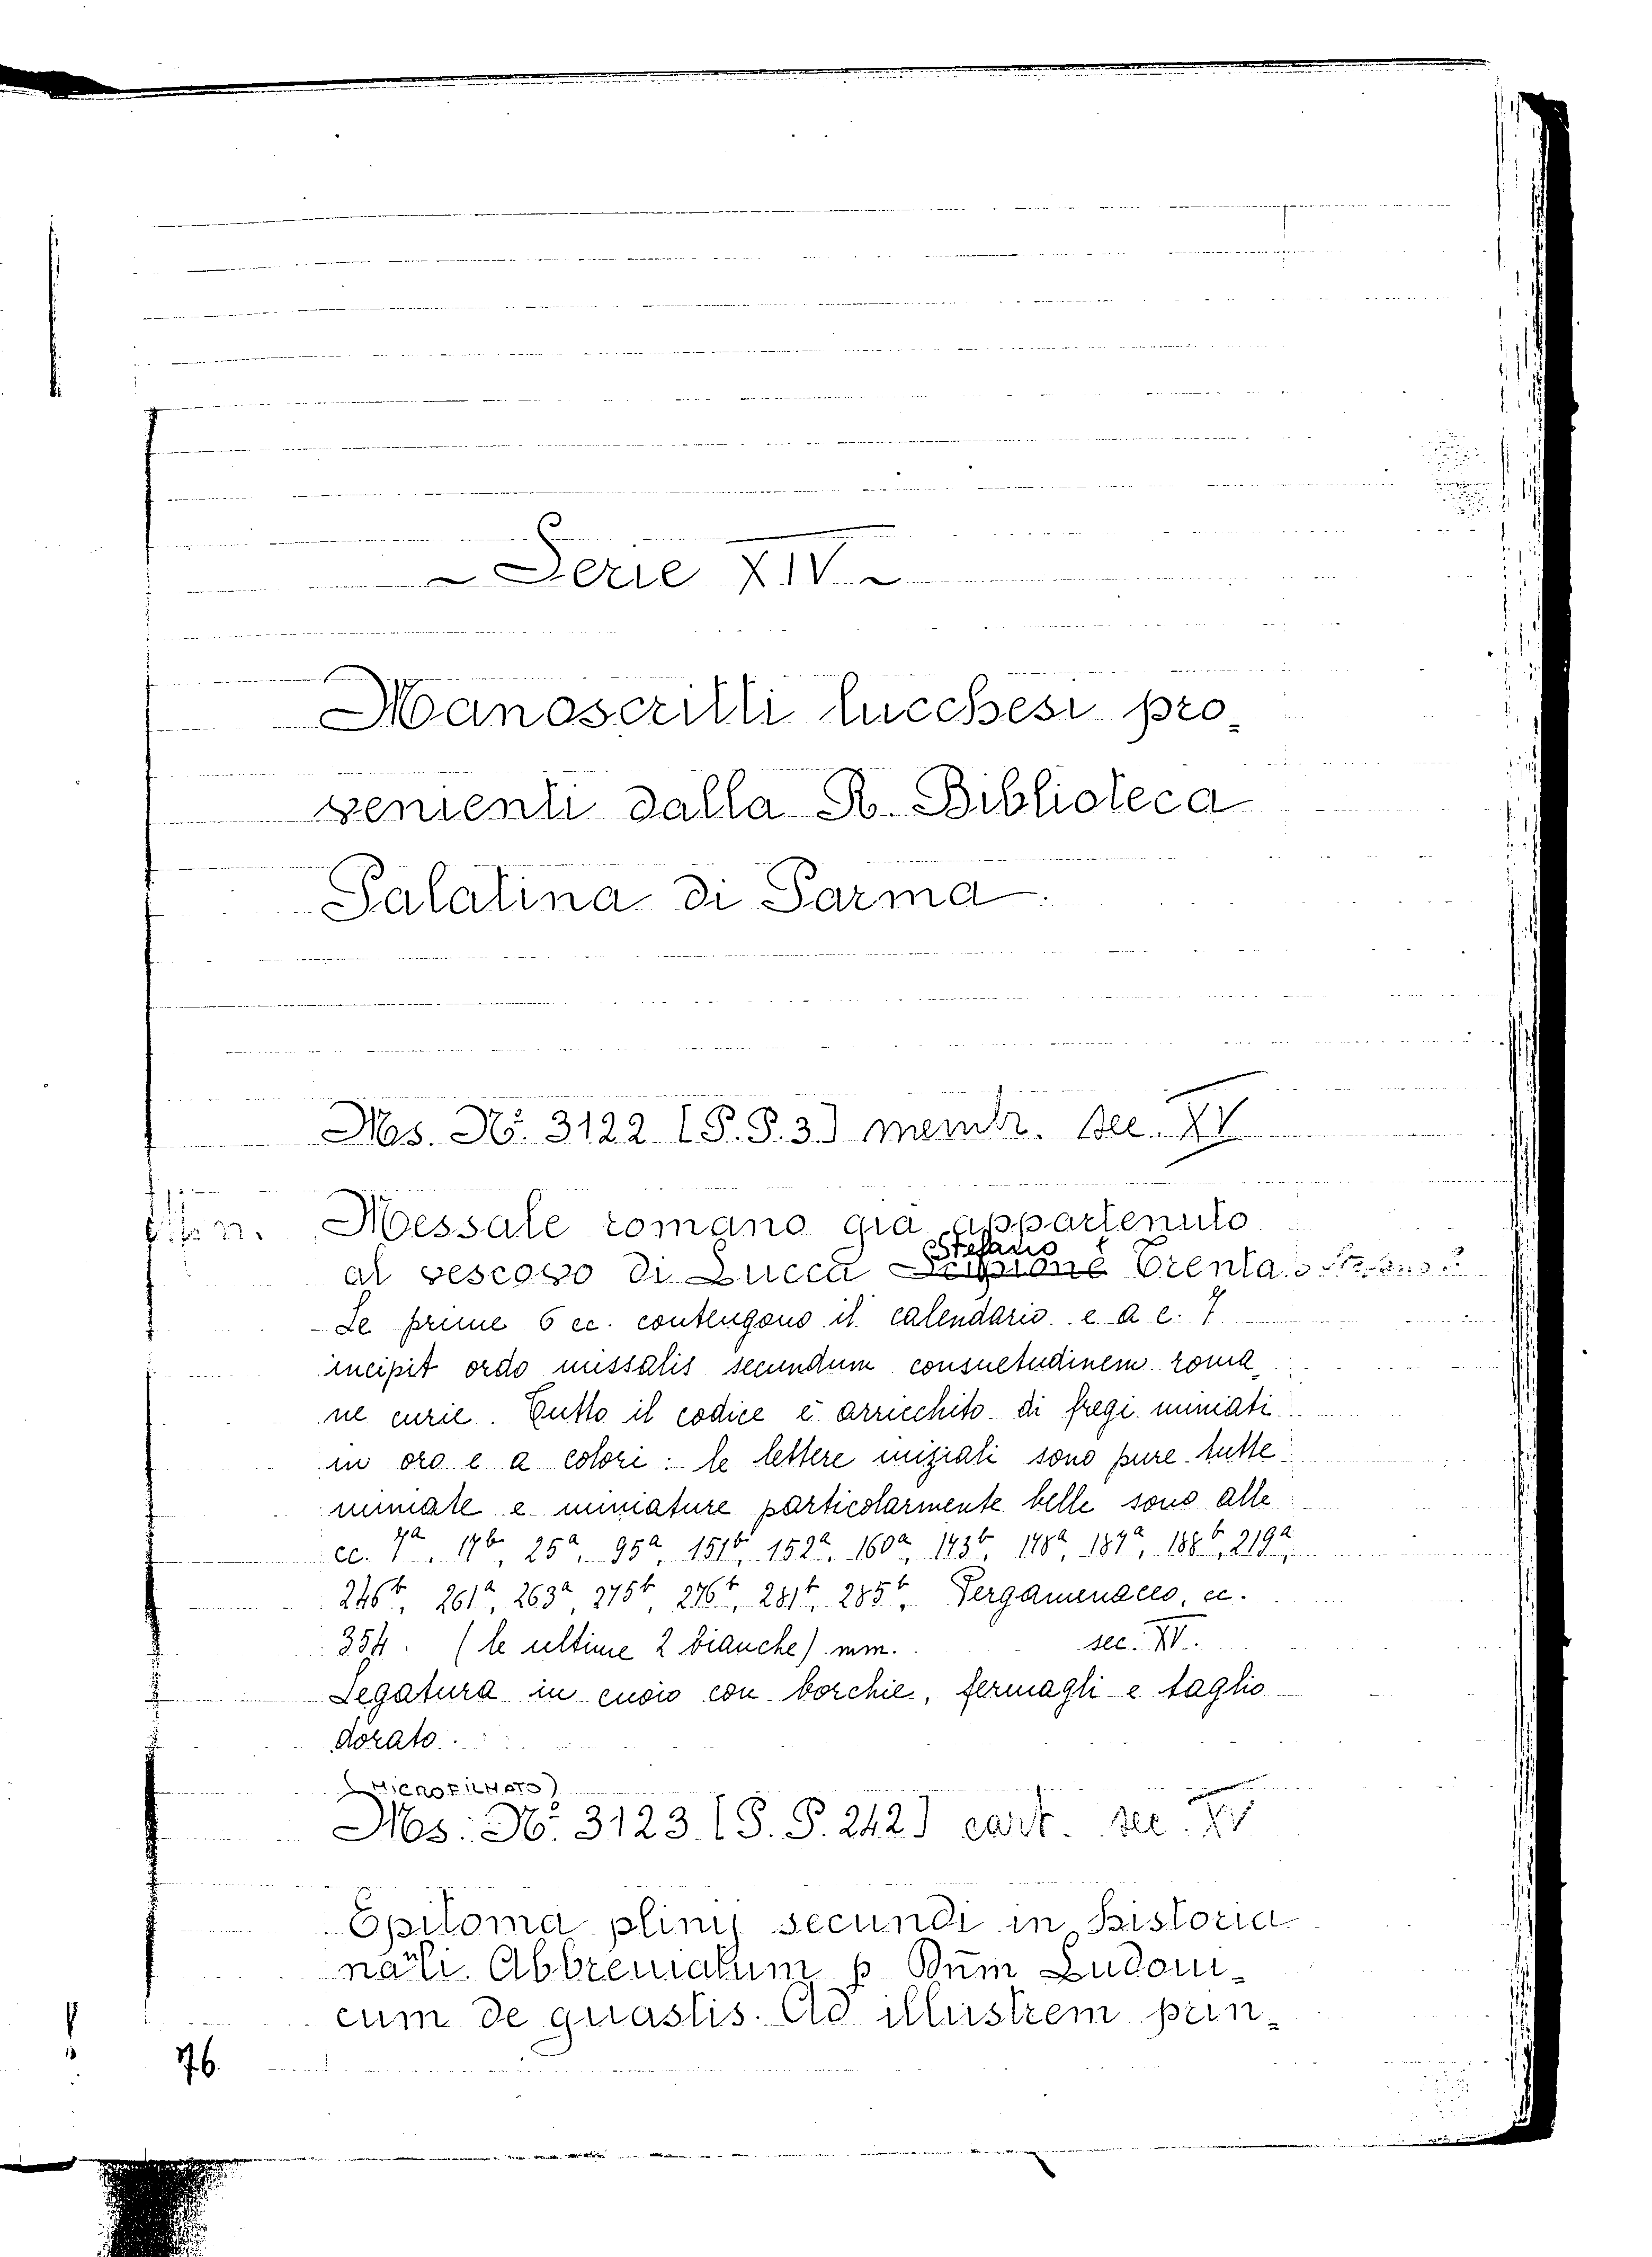 ~ Serie XIV ~
Manoscritti lucchesi pro=
venienti dalla R. Biblioteca
Palatina di Parma.
Ms. No. 3122 [P. P. 3] membr. sec. XV
Messale romano già appartenuto
Stefano
al vescovo di Lucca Scipione Trenta.
Le prime 6 cc. contengono il calendario e a c. 7
incipit ordo missalis secundum consuetudinem roma=
ne curie. Tutto il codice è arricchito di fregi miniati
in oro e a colori: le lettere iniziali sono pure tutte
miniate e miniature particolarmente belle sono alle
cc. 7a, 17b, 25a, 95a, 151b, 152a, 160a, 173b, 178a, 187a, 188b, 219a,
246b, 261a, 263a, 275b, 276b, 281b, 285b. Pergamenaceo, cc.
354. (le ultime 2 bianche) mm. sec. XV.
Legatura in cuoio con borchie, fermagli e taglio
dorato.
(MICROFILMATO)
Ms. No. 3123 [P. P. 242] cart. sec. XV
Epitoma plinij secundi in historia
nāli. Abbreuiatum p Dnm̄ Ludoui=
cum de guastis. Ad illustrem prin=
76.